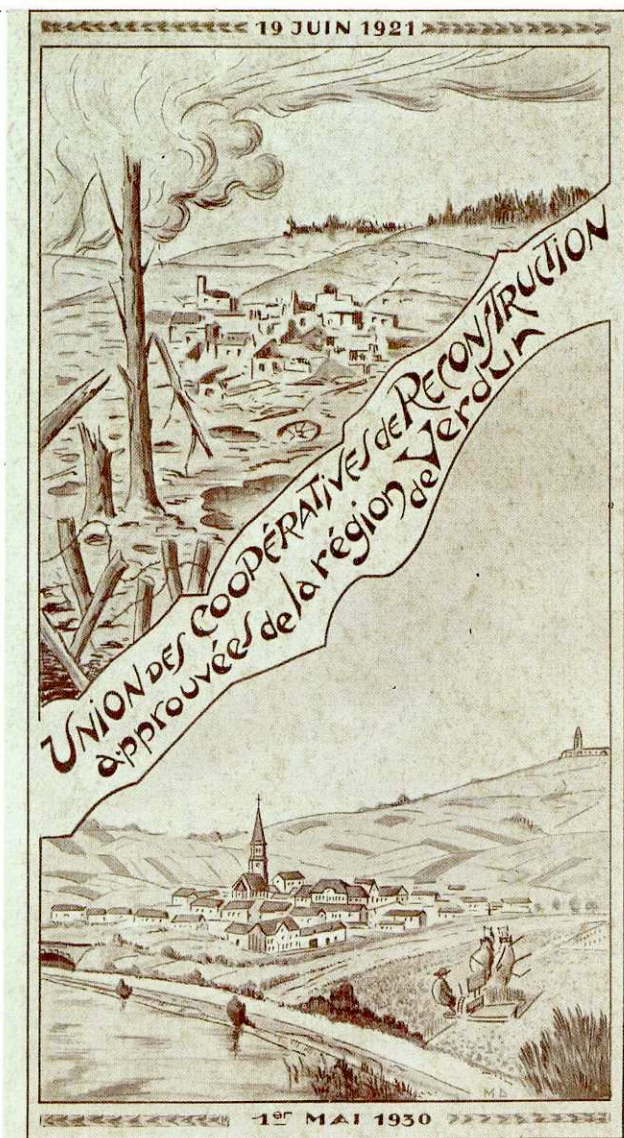 19 JUIN 1921
UNION DES COOPÉRATIVES de RECONSTRUCTION
approuvées de la région de Verdun
1er MAI 1930